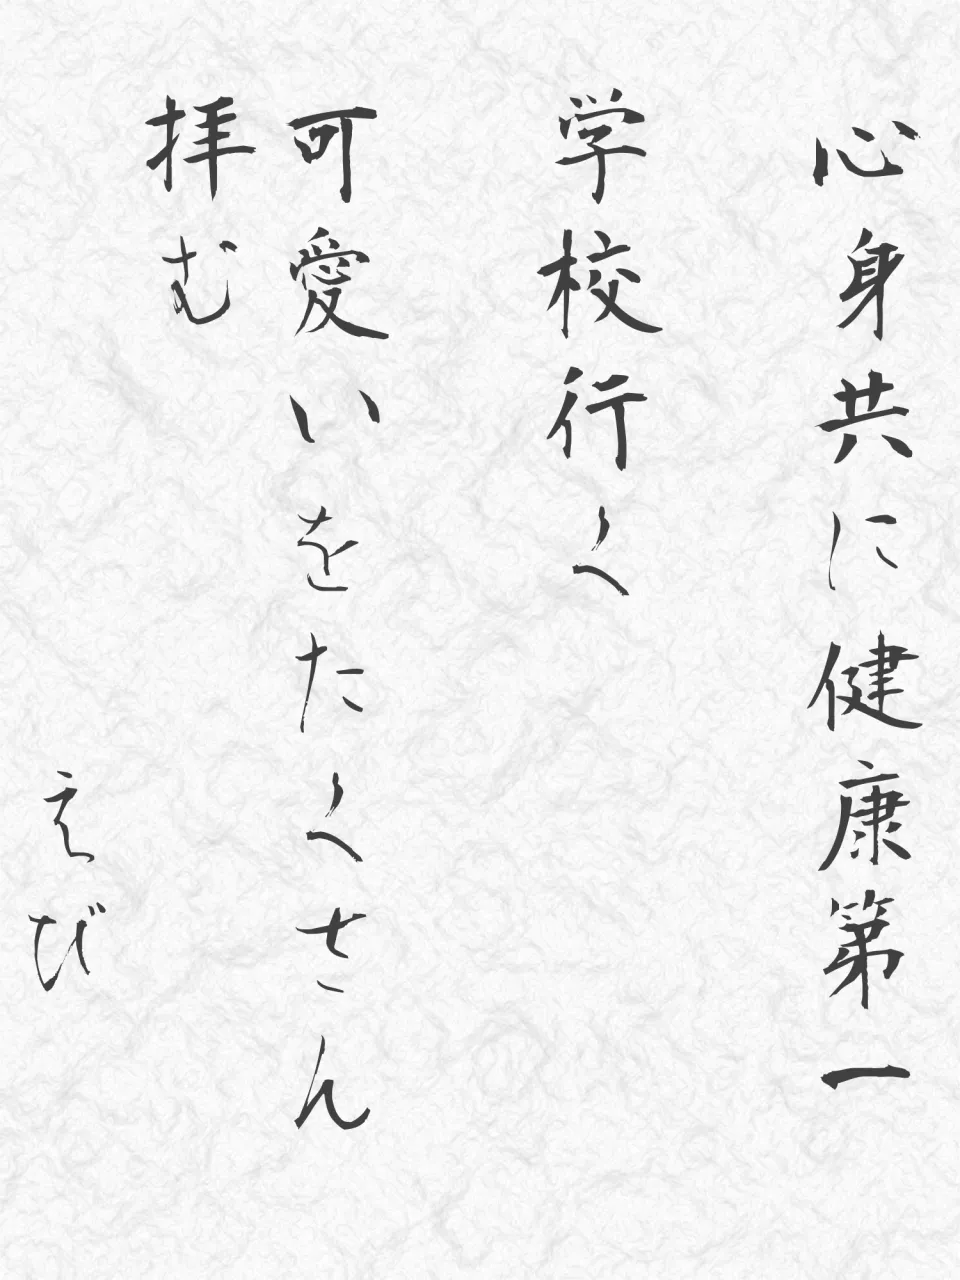 心身共に健康第一
学校行く
可愛いをたくさん
拝む
えび